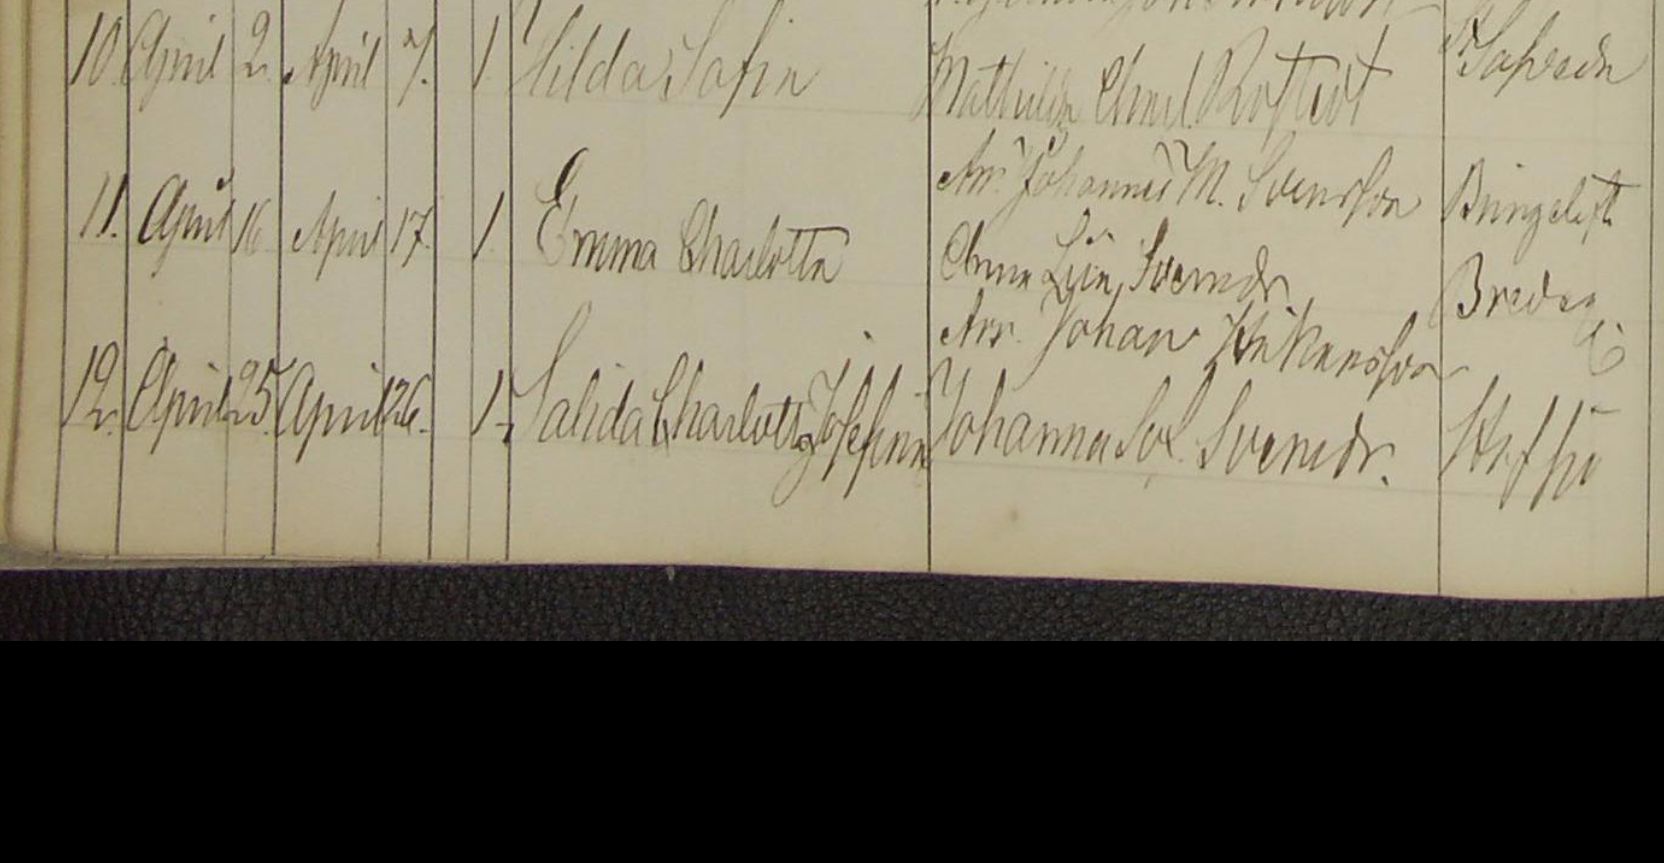 10. April 2. April 7. 1 Hilda Sofia
Mathilda Amal. Rostedt
11. April 16 April 17. 1. Emma Charlotta
Arr. Johannes M. Svensson
Anna Lisa Svensdr.
Breda
12. April 25. April 26. 1. Charlotta Josefina
Arr. Johan Håkansson
Johanna Sof. Svensdr.